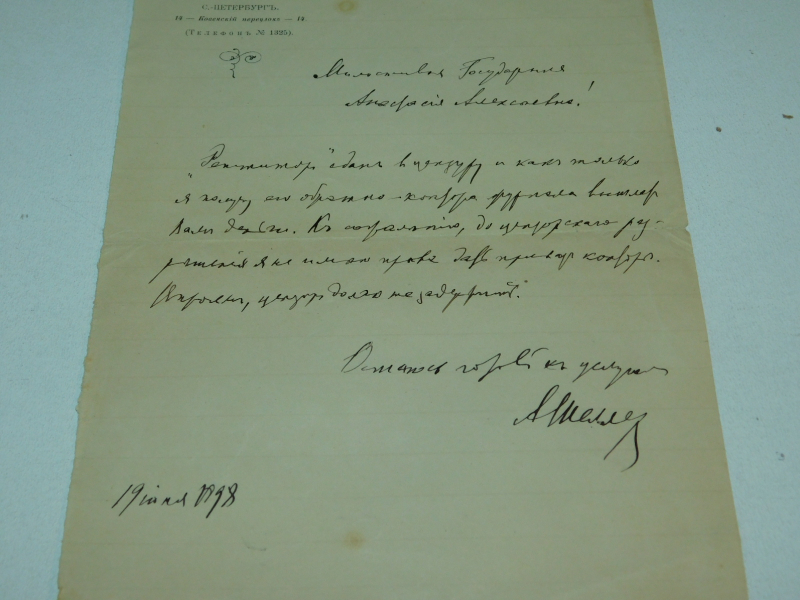 С.-ПЕТЕРБУРГЪ.
14 — Ковенскій переулокъ — 14.
(Телефонъ № 1325).
Милостивая Государыня
Анастасія Алексѣевна!
"Репетиторъ" сданъ въ цензуру и какъ только
я получу его обратно — контора журнала вышлетъ
Вамъ деньги. Къ сожалѣнію, до цензорскаго раз-
рѣшенія я не имѣю права дать приказъ конторѣ.
Впрочемъ, цензоръ долго не задержитъ.
Остаюсь готовый къ услугамъ
АШеллер
19 іюня 1898